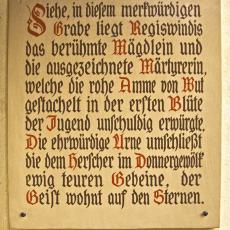 Siehe, in diesem merkwürdigen
Grabe liegt Regiswindis
das berühmte Mägdlein und
die ausgezeichnete Märtyrerin,
welche die rohe Amme von Wut
gestachelt in der ersten Blüte
der Jugend unschuldig erwürgte.
Die ehrwürdige Urne umschließt
die dem Herscher im Donnergewölk
ewig teuren Gebeine, der
Geist wohnt auf den Sternen.